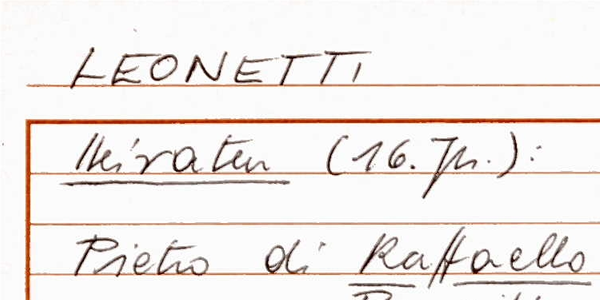 LEONETTI
Heiraten (16. Jh.):
Pietro di Raffaello